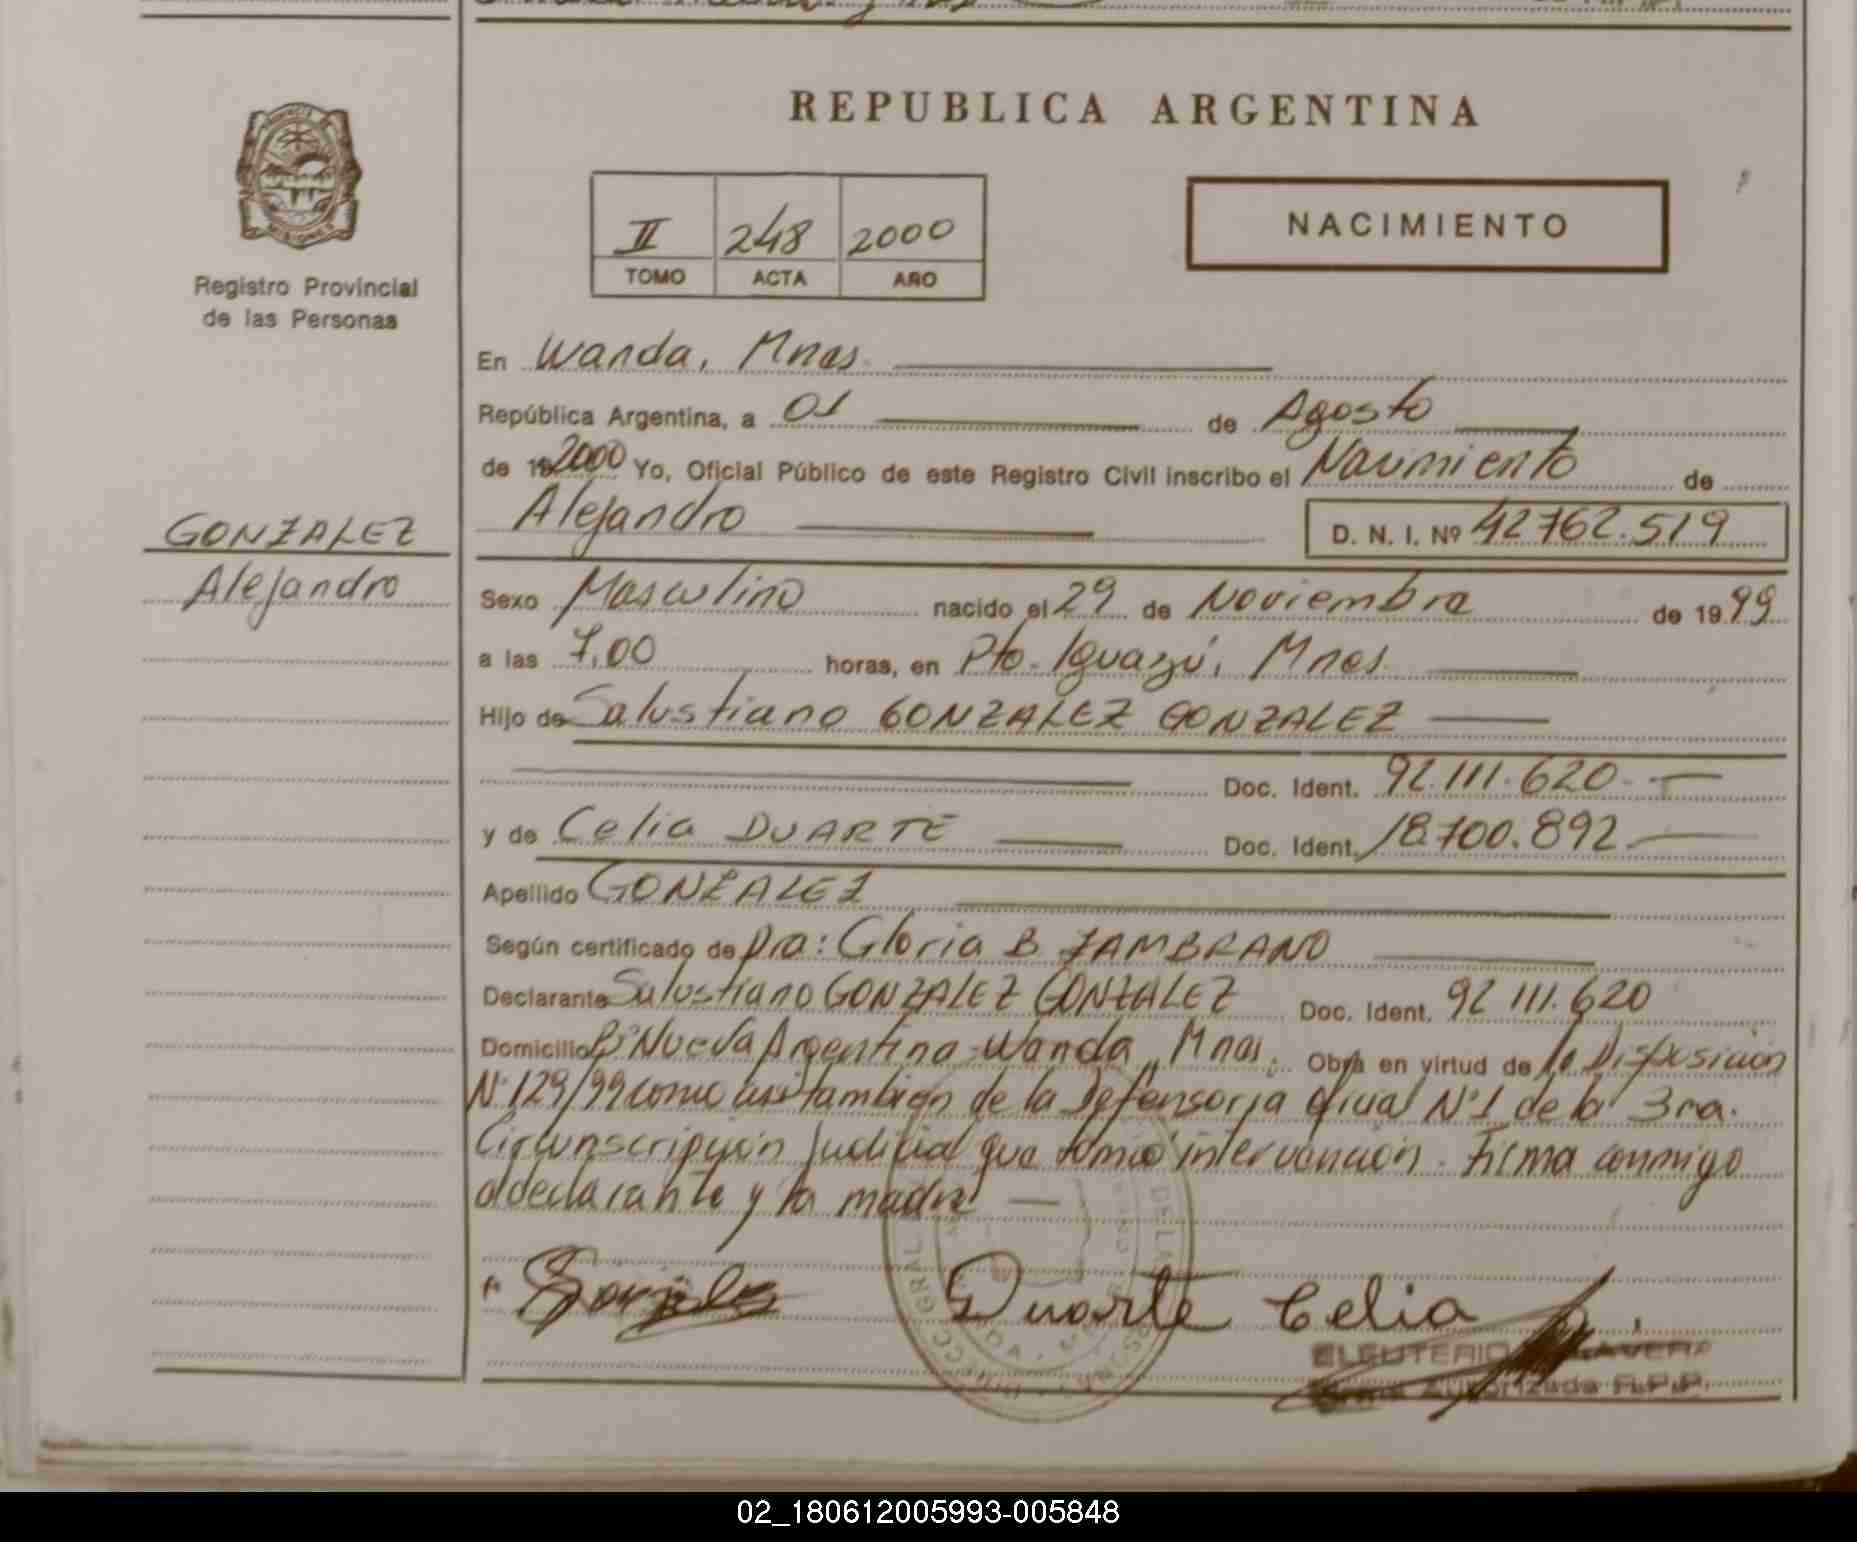 REPUBLICA ARGENTINA
II 248 2000
TOMO ACTA AÑO
NACIMIENTO
MISIONES
Registro Provincial
de las Personas
GONZALEZ
Alejandro
En Wanda, Mnes.
República Argentina, a 01 de Agosto
de 19 2000 Yo, Oficial Público de este Registro Civil inscribo el Nacimiento de
Alejandro D. N. I. Nº 42762.519
Sexo Masculino nacido el 29 de Noviembre de 1999
a las 7,00 horas, en Pto. Iguazú, Mnes.
Hijo de Salustiano GONZALEZ GONZALEZ
Doc. Ident. 92.111.620
y de Celia DUARTE Doc. Ident. 18.700.892
Apellido GONZALEZ
Según certificado de Dra: Gloria B ZAMBRANO
Declarante Salustiano GONZALEZ GONZALEZ Doc. Ident. 92 111.620
Domicilio Bº Nueva Argentina-Wanda, Mnes. Obra en virtud de la Disposición
Nº 129/99 como así también de la Defensoría Oficial Nº1 de la 3ra.
Circunscripción Judicial que tomó intervención. Firma conmigo
el declarante y la madre
Duarte Celia
ELEUTERIO
Firma Autorizada R.P.P.
02_180612005993-005848